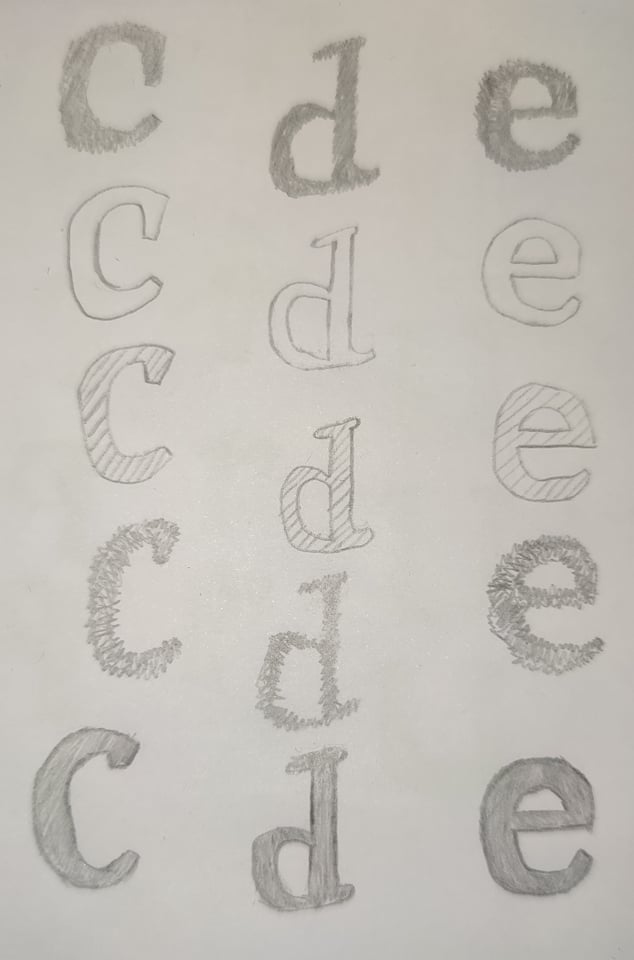 c d e
c d e
c d e
c d e
c d e